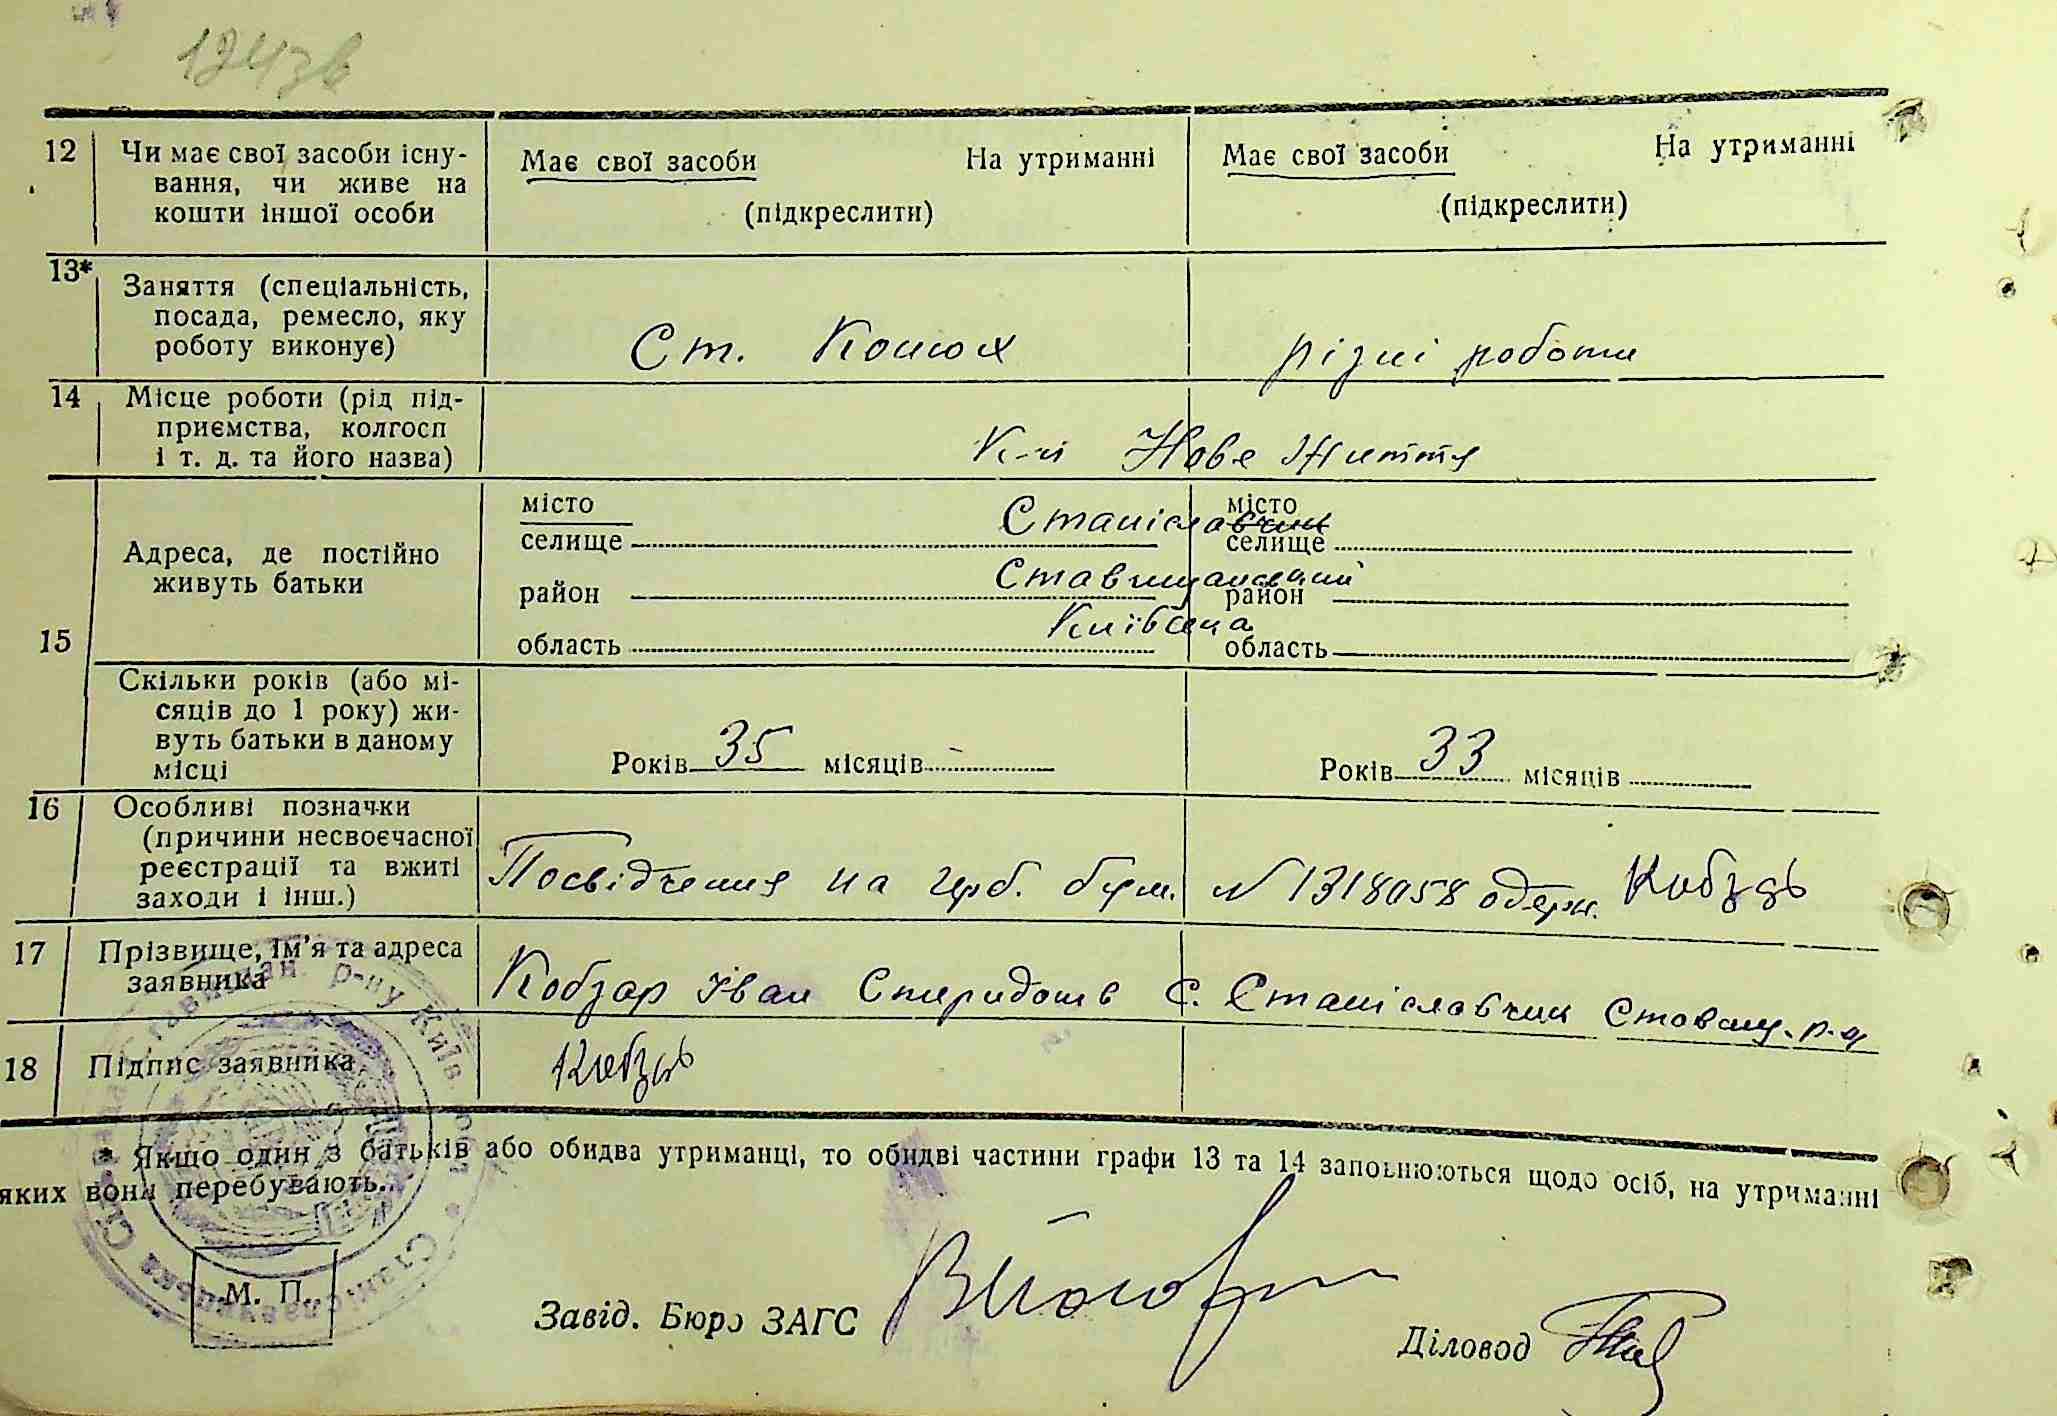 124зв
12 Чи має свої засоби існу-
вання, чи живе на
кошти іншої особи
Має свої засоби На утриманні
(підкреслити)
Має свої засоби На утриманні
(підкреслити)
13* Заняття (спеціальність,
посада, ремесло, яку
роботу виконує)
Ст. Конюх
різні роботи
14 Місце роботи (рід під-
приємства, колгосп
і т. д. та його назва)
К-п Нове Життя
15
Адреса, де постійно
живуть батьки
місто
селище Станіславчик
район Ставищанський
область Київська
місто
селище
район
область
Скільки років (або мі-
сяців до 1 року) жи-
вуть батьки в даному
місці
Років 35 місяців
Років 33 місяців
16 Особливі позначки
(причини несвоєчасної
реєстрації та вжиті
заходи і інш.)
Посвідчення на герб. бум. № 1318058 одерж. Кобзар
17 Прізвище, ім'я та адреса
заявника
Кобзар Іван Спиридонів с. Станіславчик Ставищ. р-н
18 Підпис заявника
Кобзар
* Якщо один з батьків або обидва утриманці, то обидві частини графи 13 та 14 заповнюються щодо осіб, на утриманні
яких вони перебувають.
М. П.
Завід. Бюро ЗАГС
Діловод